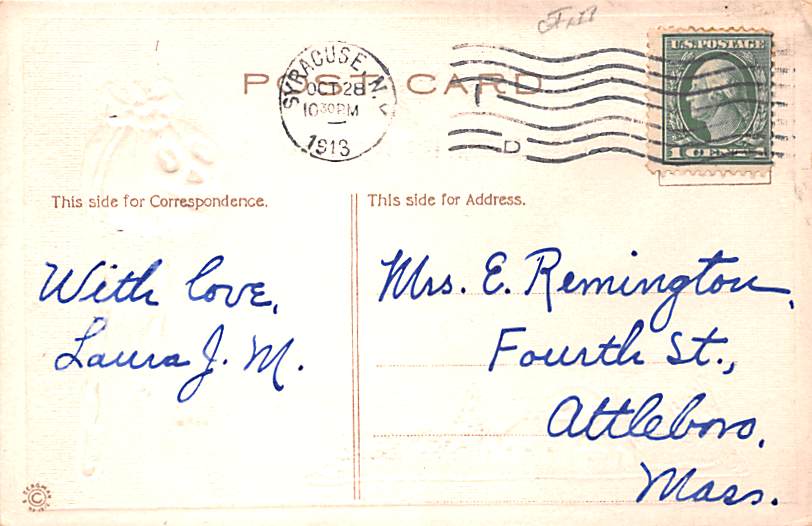 POST CARD
SYRACUSE, N.Y.
OCT 28
10 30 PM
1913
D
U.S. POSTAGE
1 CENT 1
This side for Correspondence.
This side for Address.
With love,
Laura J. M.
Mrs. E. Remington,
Fourth St.,
Attleboro,
Mass.